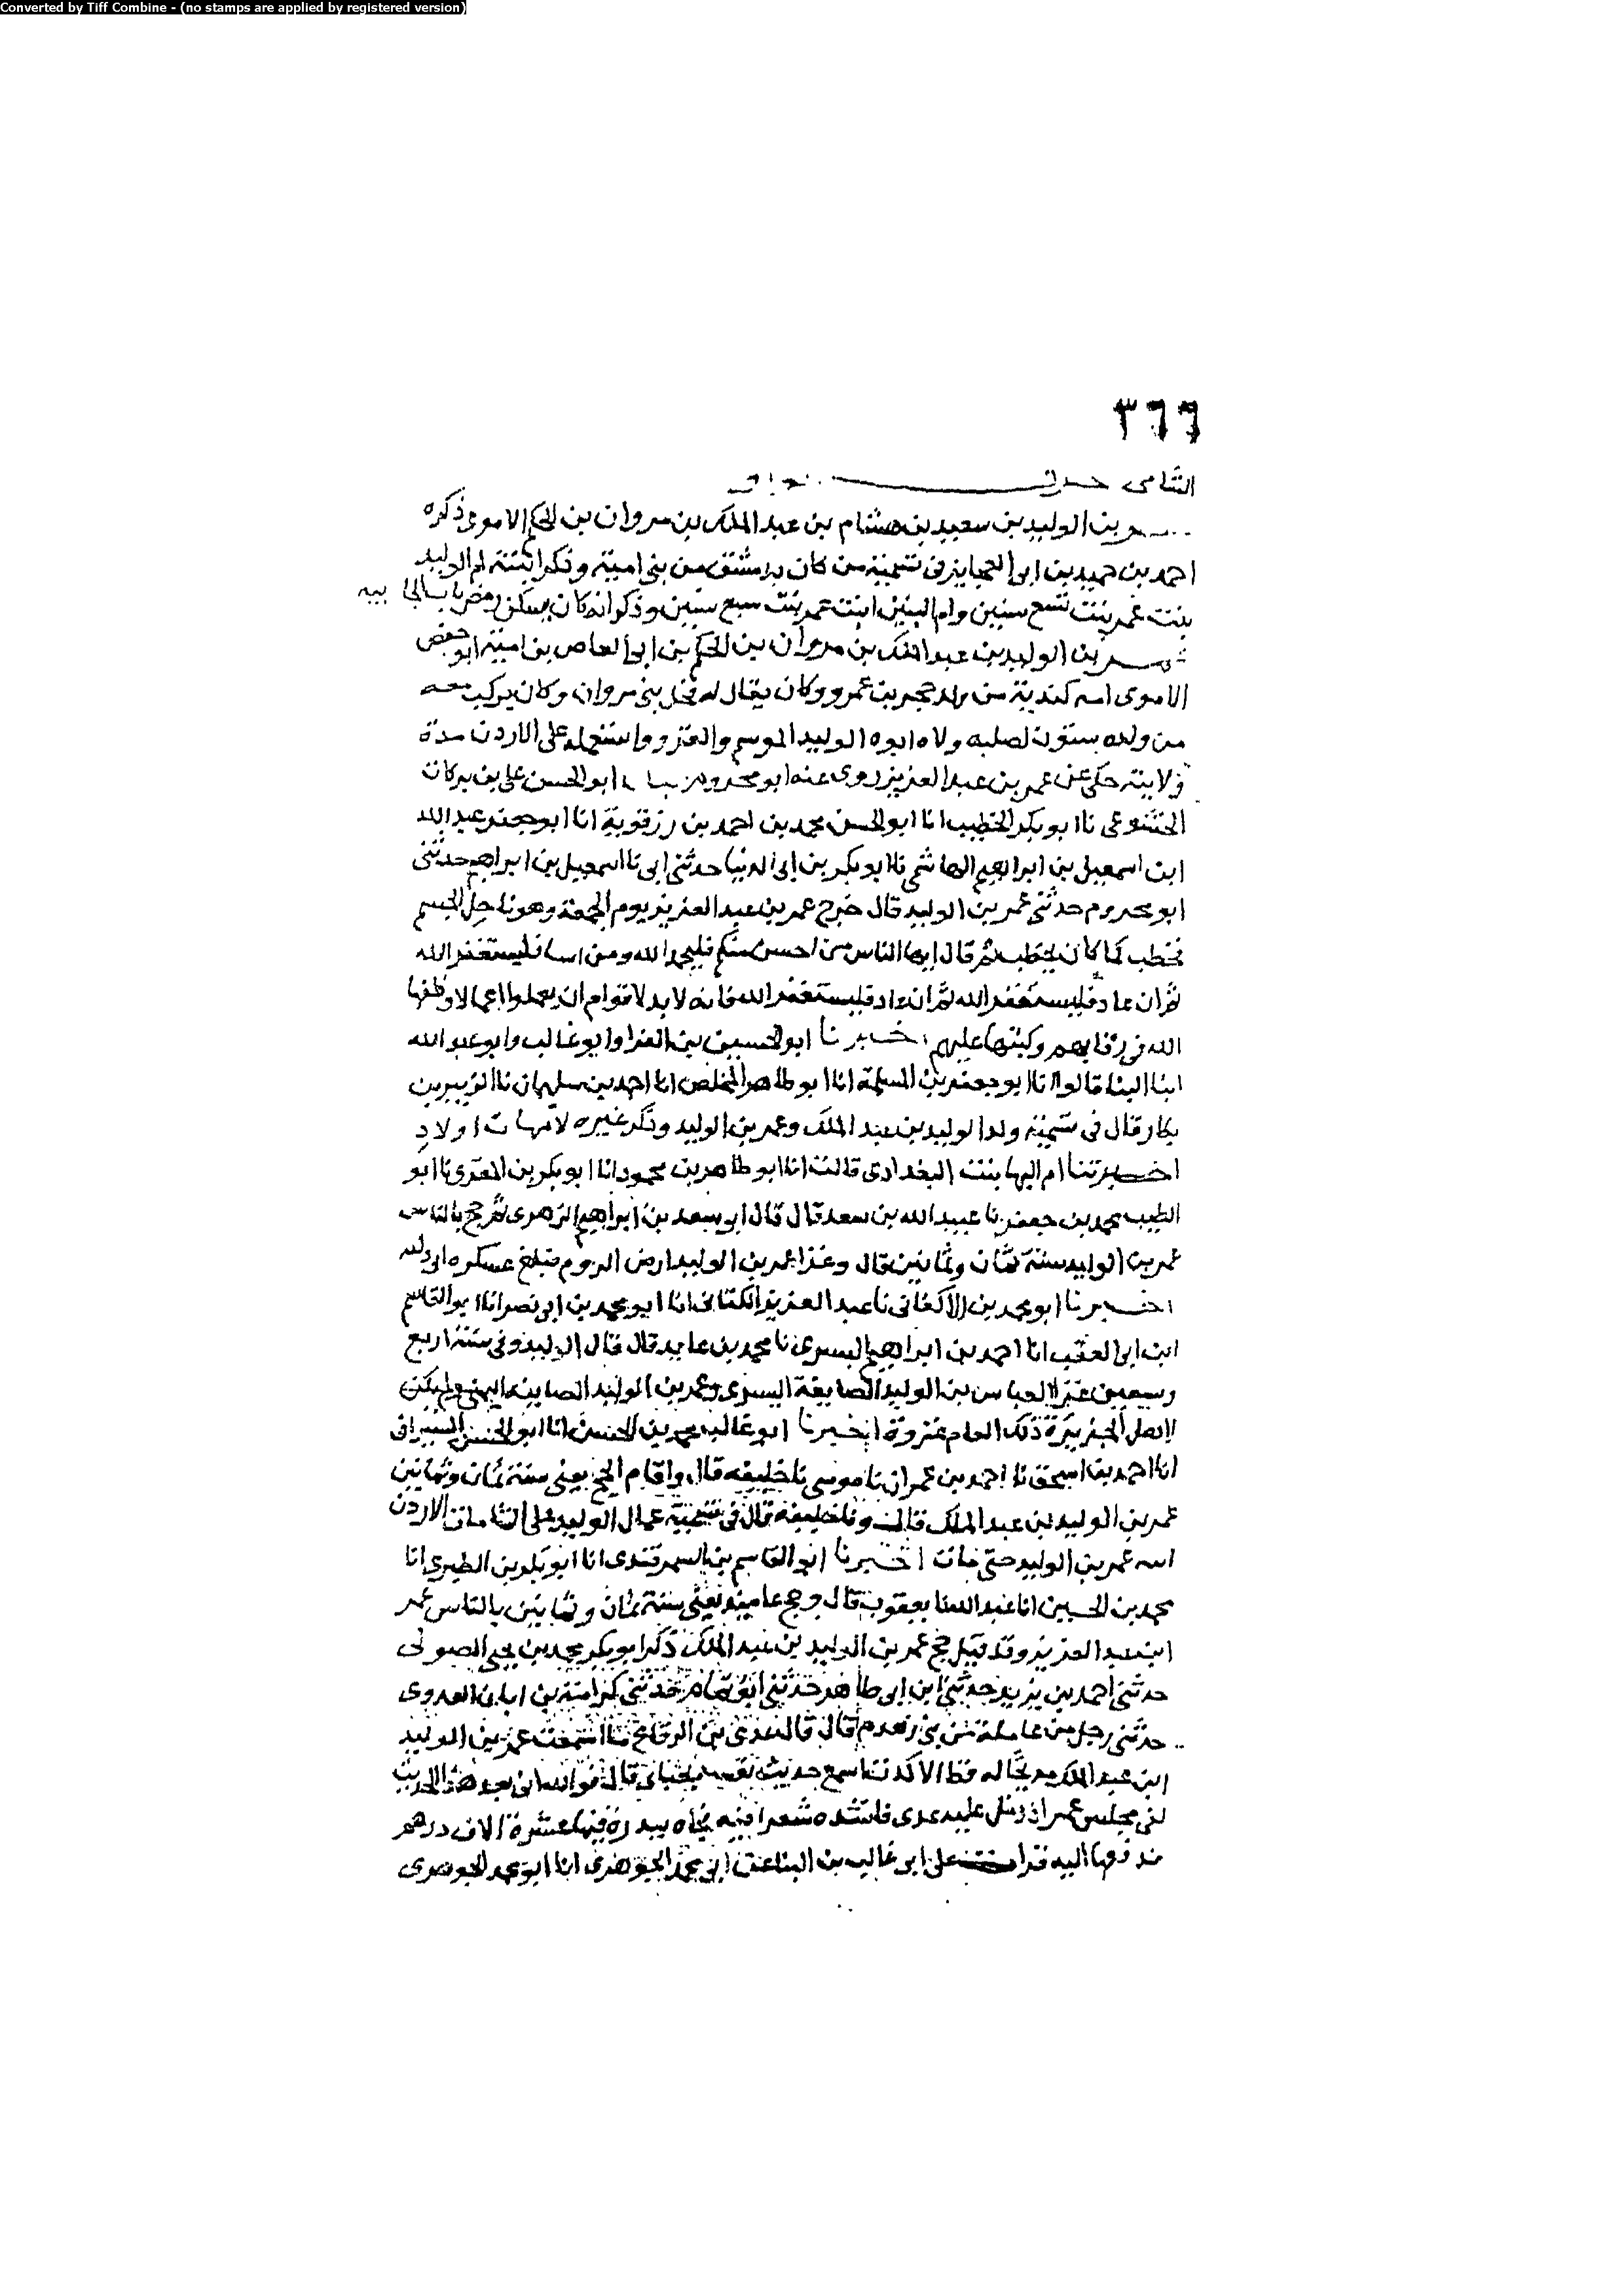 Converted by Tiff Combine - (no stamps are applied by registered version)
٣٦٦
الشامى
بن الوليد بن سعيد بن هشام بن عبد الملك بن مروان بن الحكم الاموى ذكره
احمد بن حميد بن ابى العجايز فى تسمية من كان بدمشق من بنى امية وذكر ابنته ام الوليد
بنت عمر بنت تسع سنين وام البنين ابنت عمر بنت سبع سنين وذكر انه كان يسكن ربض باب الجا بيه
بن الوليد بن عبد الملك بن مروان بن الحكم بن ابى العاص بن امية ابو حفص
الاموى امه كندية من ولد حجر بن عمرو وكان يقال له فحل بنى مروان وكان يركب معه
من ولده ستون لصلبه ولاه ابوه الوليد الموسم والغزو واستعمله على الاردن مدة
ولايته حكى عن عمر بن عبد العزيز روى عنه ابو ابو الحسن على بن بركات
الخشوعى نا ابو بكر الخطيب انا ابو الحسن محمد بن احمد بن رزقوية انا ابو جعفر عبد الله
ابن اسمعيل بن ابراهيم الهاشمى نا ابو بكر بن ابى الدنيا حدثنى ابى نا اسمعيل بن ابراهيم حدثنى
ابو حدثنى عمر بن الوليد قال خرج عمر بن عبد العزيز يوم الجمعة وهو ناحل الجسم
فخطب كما كان يخطب ثم قال ايها الناس من احسن منكم فليحمد الله ومن اسا فليستغفر الله
ثم ان عاد فليستغفر الله ثم ان عاد فليستغفر الله فانه لا بد لاقوام ان يعملوا اعمالا وظفها
الله فى رقابهم وكتبها عليهم اخبرنا ابو الحسين بن الفرا وابو غالب وابو عبد الله
ابنا البنا قالوا انا ابو جعفر بن المسلمة انا ابو طاهر المخلص انا احمد بن سليمان نا الزبير بن
بكار قال فى تسمية ولد الوليد بن عبد الملك وعمر بن الوليد وذكر غيره لامهات اولاد
اخبرتنا ام البها بنت البغدادى قالت انا ابو طاهر بن محمود انا ابو بكر بن المقرى نا ابو
الطيب محمد بن جعفر نا عبيد الله بن سعد قال قال ابو سعد بن ابراهيم الزهرى ثم حج بالناس
عمر بن الوليد سنة ثمان وثمانين قال وغزا عمر بن الوليد ارض الروم فبلغ عسكره
اخبرنا ابو محمد بن الاكفانى نا عبد العزيز الكتانى انا ابو محمد بن ابى نصر انا ابو القاسم
ابن ابى العقب انا احمد بن ابراهيم البسرى نا محمد بن عايد قال قال الوليد وفى سنة اربع
وسبعين غزا العباس بن الوليد الصايفة اليسرى وعمر بن الوليد الصايفة اليمنى ولم يكن
لاهل الجزيرة ذلك العام غزوة اخبرنا ابو غالب محمد بن الحسن انا ابو الحسن السيرافى
انا احمد بن اسحق نا احمد بن عمران نا موسى نا خليفه قال واقام الحج يعنى سنة ثمان وثمانين
عمر بن الوليد بن عبد الملك قال ونا خليفة قال فى تسمية عمال الوليد على الشامات الاردن
ابنه عمر بن الوليد حتى مات اخبرنا ابو القاسم بن السمرقندى انا ابو بكر بن الطبرى انا
محمد بن الحسين انا عبد الله نا يعقوب قال وحج عاميذ يعنى سنة ثمان وثمانين بالناس عمر
ابن عبد العزيز وقد قيل حج عمر بن الوليد بن عبد الملك ذكر ابو بكر محمد بن يحيى الصولى
حدثنى احمد بن يزيد حدثنى ابن ابى طاهر حدثنى ابو تمام حدثنى كرامة بن ابان العدوى
حدثنى رجل من عاملة من بنى قال قال عدى بن الرقاع ما سمعت عمر بن الوليد
ابن عبد الملك قط الا كدت اسمع حديث نفسه قال فوالله انى بعد هذا الحديث
لفى مجلس عمر اذ دخل عليه عدى فانشده شعرا فيه فجاه ببدرة فيها عشرة الاف درهم
فدفعها اليه قرات على ابى غالب بن البنا عن ابى محمد الجوهرى انا ابو محمد الجوهرى